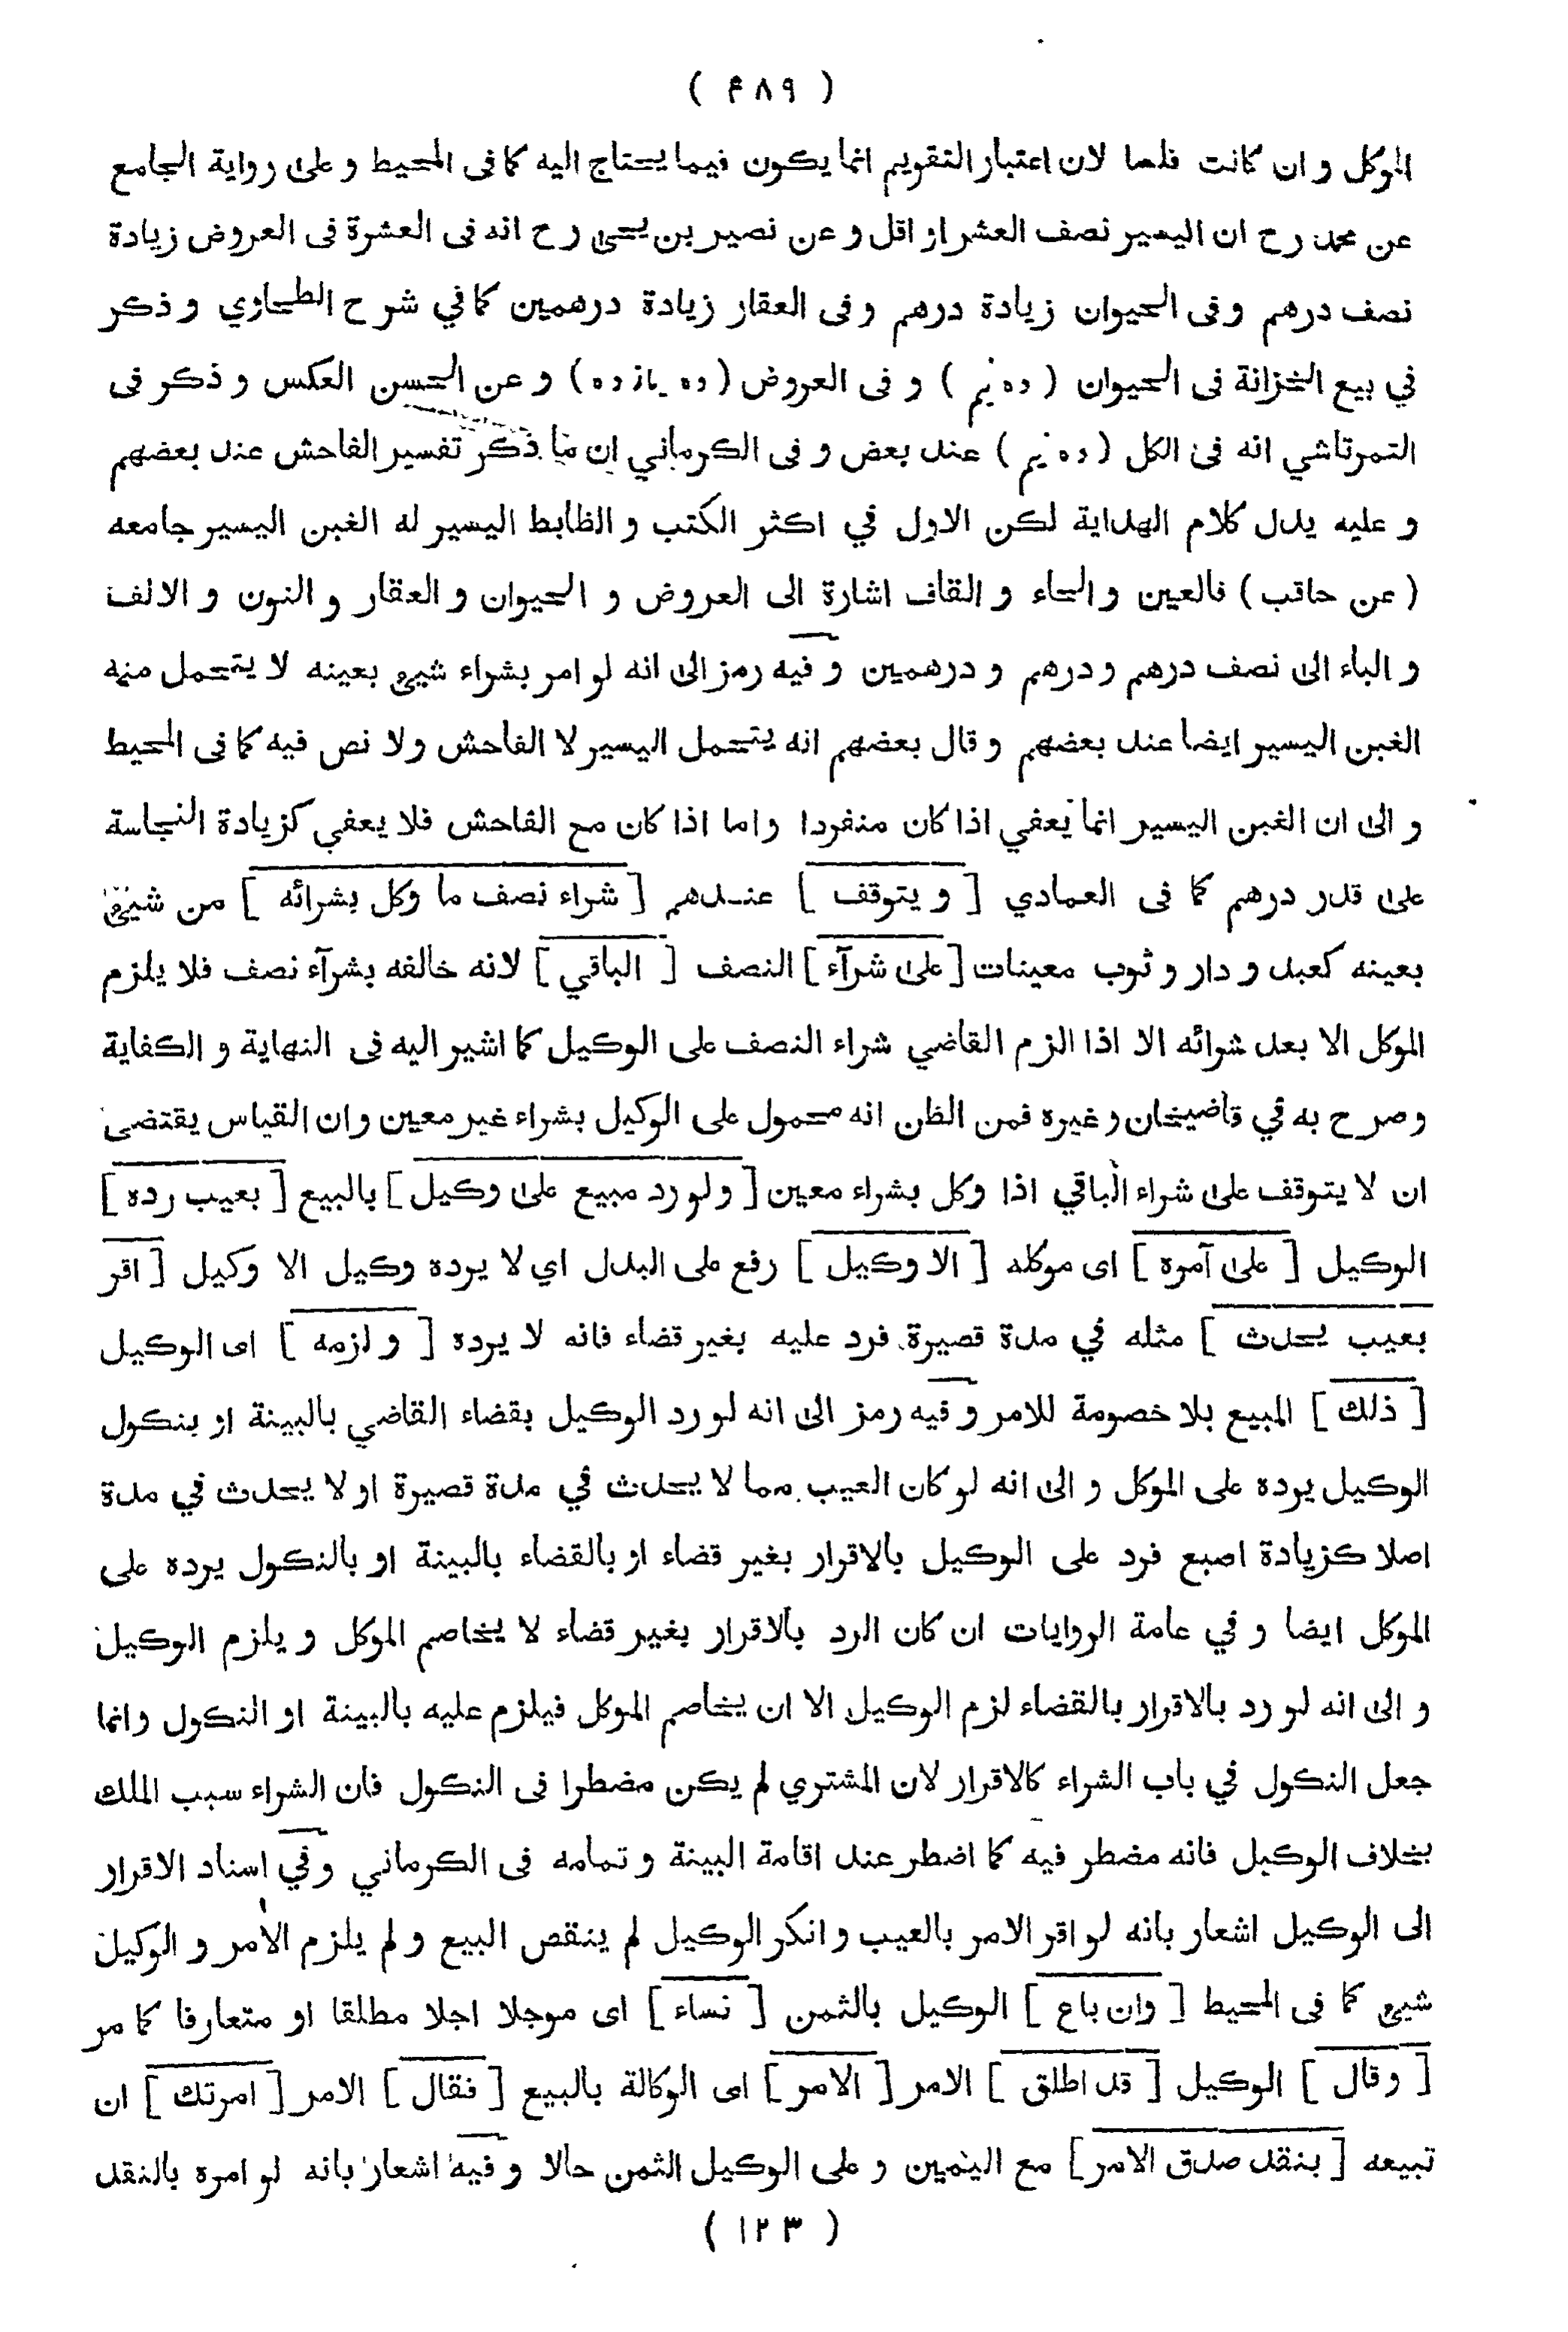 ( ۴۸۹ )
الموكل و ان كانت فلسا لان اعتبار التقويم انما يكون فيما يحتاج اليه كما فى المحيط و على رواية الجامع
عن محمد رح ان اليسير نصف العشر او اقل و عن نصير بن يحيى رح انه فى العشرة فى العروض زيادة
نصف درهم و فى الحيوان زيادة درهم و فى العقار زيادة درهمين كما في شرح الطحاوي و ذكر
في بيع الخزانة فى الحيوان ( ده نيم ) و فى العروض ( ده يازده ) و عن الحسن العكس و ذكر فى
التمرتاشي انه فى الكل ( ده نيم ) عند بعض و فى الكرماني ان ما ذكر تفسير الفاحش عند بعضهم
و عليه يدل كلام الهداية لكن الاول في اكثر الكتب و الظابط اليسير له الغبن اليسير جامعه
( عن حاقب ) فالعين و الحاء و القاف اشارة الى العروض و الحيوان و العقار و النون و الالف
و الباء الى نصف درهم و درهم و درهمين و فيه رمز الى انه لو امر بشراء شيئ بعينه لا يتحمل منه
الغبن اليسير ايضا عند بعضهم و قال بعضهم انه يتحمل اليسير لا الفاحش ولا نص فيه كما فى المحيط
و الى ان الغبن اليسير انما يعفي اذا كان منفردا و اما اذا كان مع الفاحش فلا يعفي كزيادة النجاسة
على قدر درهم كما فى العمادي [ و يتوقف ] عندهم [ شراء نصف ما وكل بشرائه ] من شيئ
بعينه كعبد و دار و ثوب معينات [ على شرآء ] النصف [ الباقي ] لانه خالفه بشرآء نصف فلا يلزم
الموكل الا بعد شرائه الا اذا الزم القاضي شراء النصف على الوكيل كما اشير اليه فى النهاية و الكفاية
و صرح به في قاضيخان و غيره فمن الظن انه محمول على الوكيل بشراء غير معين و ان القياس يقتضى
ان لا يتوقف على شراء الباقي اذا وكل بشراء معين [ و لو رد مبيع على وكيل ] بالبيع [ بعيب رده ]
الوكيل [ على آمره ] اى موكله [ الا وكيل ] رفع على البدل اي لا يرده وكيل الا وكيل [ اقر
بعيب يحدث ] مثله في مدة قصيرة فرد عليه بغير قضاء فانه لا يرده [ و لزمه ] اى الوكيل
[ ذلك ] المبيع بلا خصومة للامر و فيه رمز الى انه لو رد الوكيل بقضاء القاضي بالبينة او بنكول
الوكيل يرده على الموكل و الى انه لو كان العيب مما لا يحدث في مدة قصيرة او لا يحدث في مدة
اصلا كزيادة اصبع فرد على الوكيل بالاقرار بغير قضاء او بالقضاء بالبينة او بالنكول يرده على
الموكل ايضا و في عامة الروايات ان كان الرد بالاقرار بغير قضاء لا يخاصم الموكل و يلزم الوكيل
و الى انه لو رد بالاقرار بالقضاء لزم الوكيل الا ان يخاصم الموكل فيلزم عليه بالبينة او النكول و انما
جعل النكول في باب الشراء كالاقرار لان المشتري لم يكن مضطرا فى النكول فان الشراء سبب الملك
بخلاف الوكيل فانه مضطر فيه كما اضطر عند اقامة البينة و تمامه فى الكرماني و في اسناد الاقرار
الى الوكيل اشعار بانه لو اقر الامر بالعيب و انكر الوكيل لم ينقص البيع و لم يلزم الامر و الوكيل
شيئ كما فى المحيط [ و ان باع ] الوكيل بالثمن [ نساء ] اى موجلا اجلا مطلقا او متعارفا كما مر
[ و قال ] الوكيل [ قد اطلق ] الامر [ الامر ] اى الوكالة بالبيع [ فقال ] الامر [ امرتك ] ان
تبيعه [ بنقد صدق الامر ] مع اليمين و على الوكيل الثمن حالا و فيه اشعار بانه لو امره بالنقد
( ۱۲۳ )